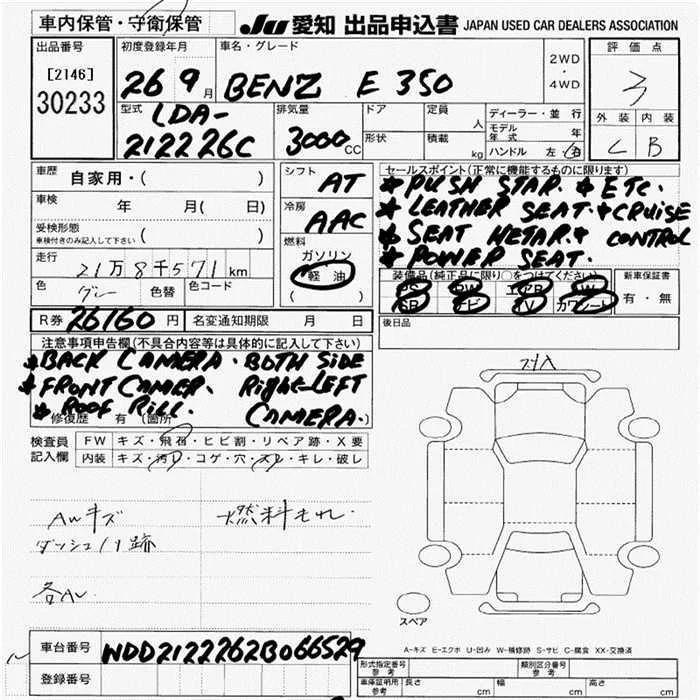 車内保管・守衛保管 JU 愛知 出品申込書 JAPAN USED CAR DEALERS ASSOCIATION
出品番号 初度登録年月 車名・グレード 2WD・4WD 評価点
[2146] 26 9月 BENZ E 350 3
30233 型式 LDA-212226C 排気量 3000cc ドア 定員 人 ディーラー・並行 外装 内装
形状 積載 kg モデル年式 年 C B
ハンドル 左・右
車歴 自家用・( ) シフト AT セールスポイント(正常に機能するものに限ります)
車検 年 月( 日) 冷房 AAC ★PUSH STAR. ★ETC.
受検形態 ( ) ★LEATHER SEAT.★CRUISE
車検付きのみ記入して下さい 燃料 ★SEAT HETAR.★ CONTROL
走行 21万8千571km ガソリン ★POWER SEAT.
色 グレー 色替 色コード 軽油 装備品(純正品に限り○をつけてください) 新車保証書
( ) PS PW エアB AW 有・無
SR ナビ TV カワシート
R券 26160円 名変通知期限 月 日 後日品
注意事項申告欄(不具合内容等は具体的に記入して下さい)
★BACK CAMERA. BOTH SIDE
★FRONT CAMER. Right-LEFT
★ROOF RILL. CAMERA.
修復歴 有 (箇所 )
検査員記入欄 FW キズ・飛石・ヒビ割・リペア跡・X要
内装 キズ・汚レ・コゲ・穴・スレ・キレ・破レ
AWキズ 燃料もれ.
ダッシュノリ跡
各AW
スペア
A-キズ E-エクボ U-凹み W-補修跡 S-サビ C-腐食 XX-交換済
車台番号 WDD2122262B066529
登録番号 形式指定番号 参考 類別区分番号 参考
車庫証明用 参考 長さ cm 幅 cm 高さ cm